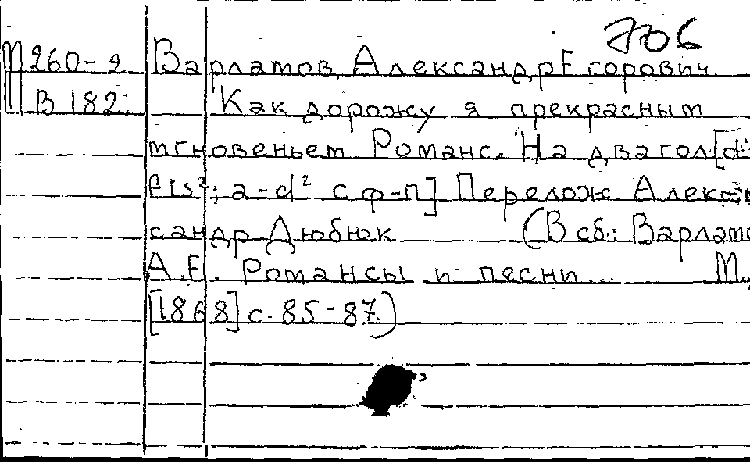 706
М 260-2 Варламов, Александр Егорович
В 182 Как дорожу я прекрасным
мгновеньем Романс. На два гол. [d¹
fis²; a-d² с ф-п] Перелож Алек
сандр Дюбюк (В сб.: Варламо
А.Е. Романсы и песни... М.,
[1868] с. 85-87)